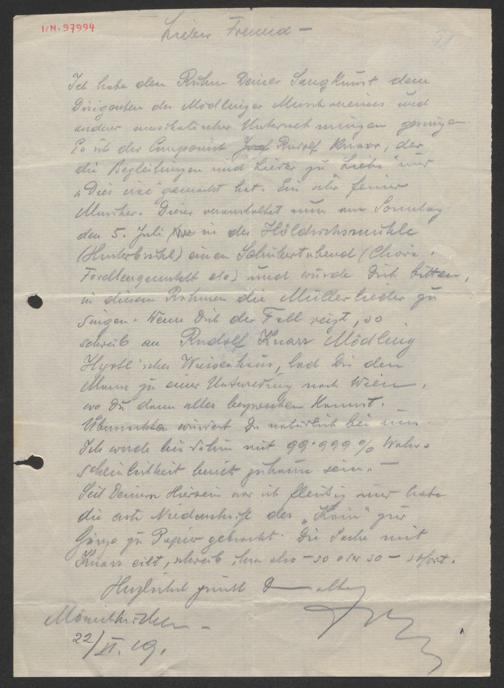 I.N. 97994
Lieber Freund –
Ich habe den Ruhm Deiner Sangkunst dem
Dirigenten des Mödlinger Musikvereines und
anderer musikalischer Unternehmungen gesungen
Es ist der Componist Josef Rudolf Knarr, der
die Begleitungen und Lieder zu
gemacht hat. Ein sehr feiner
Musiker. Dieser veranstaltet nun am Sonntag
den 5. Juli in der Höldrichsmühle
(Hinterbrühl) einen Schubertabend (Chöre
Forellenquintett etc) und würde Dich bitten,
in diesem Rahmen die Müllerlieder zu
singen. Wenn Dich der Fall reizt, so
schreib an Rudolf Knarr Mödling
Hyrtl'sches Waisenhaus, lad Dir den
Mann zu einer Unterredung nach Wien,
wo Du dann alles besprechen kannst.
Übernachten würdest Du natürlich bei uns.
Ich werde bis dahin mit 99·999 % Wahr-
scheinlichkeit zuhause sein.–
Seit Deinem Hiersein war ich fleißig und habe
die erste Niederschrift des „Kain" zur
Gänze zu Papier gebracht. Die Sache mit
Knarr eilt, schreib ihm also – so oder so – sofort.
Herzlichst grüßt D alle
Mönichkirchen –
22/VI. 19.